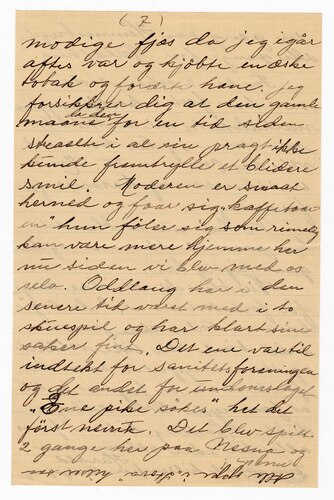 (7)
modige fjæs da jeg igår
aftes var og kjøbte en æske
tobak og forærte hane. Jeg
forsikkrer dig at den gamle
maane da den for en tid siden
straalte i al sin pragt ikke
kunde fremtrylle et blidere
smil. Moderen er snart
herned og faar sig "kaffetaar
en" hun föler sig som rimelig
kan være mere hjemme her
nu siden vi blev med os
selv. Oddlaug har i den
senere tid været med i to
skuespil og har klart sine
saker fint. Det ene var til
indtekt for sanitetsforeningen
og det andet for ungdomslaget
"Ene pike sökes" het det
först nevnte. Det blev spilt
2 gange her paa Nesna og